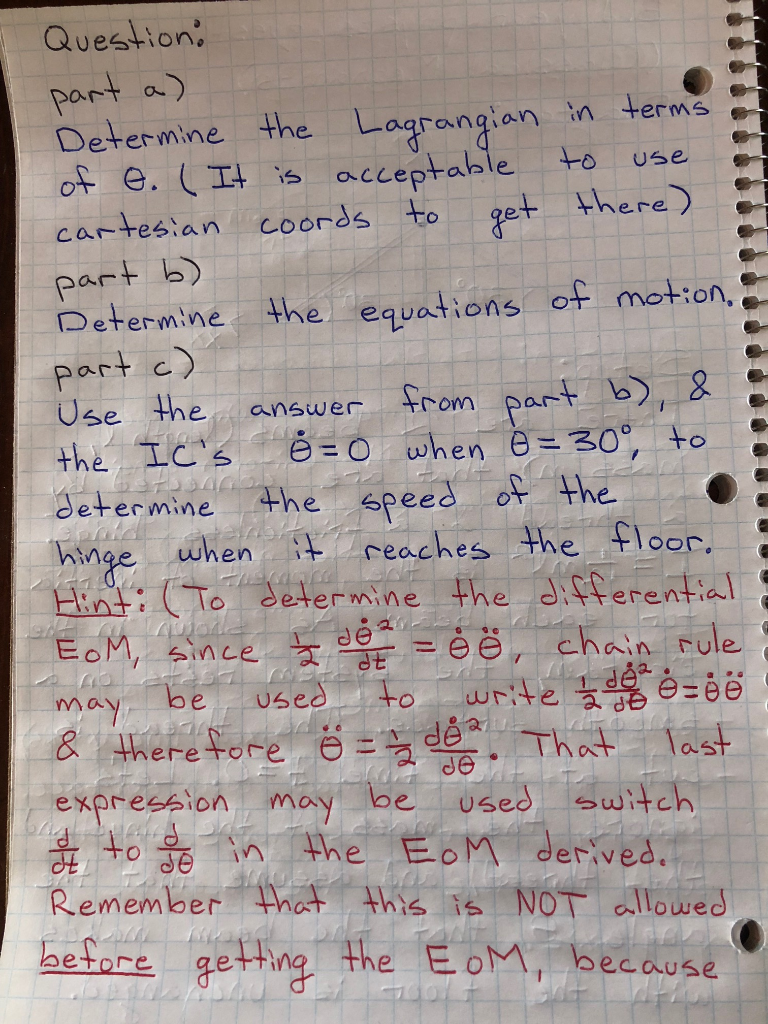 Question:
part a)
Determine the Lagrangian in terms
of θ. ( It is acceptable to use
cartesian coords to get there)
part b)
Determine the equations of motion.
part c)
Use the answer from part b), &
the IC's θ̇ = 0 when θ = 30°, to
determine the speed of the
hinge when it reaches the floor.
Hint: ( To determine the differential
EoM, since 1/2 dθ̇²/dt = θ̇ θ̈, chain rule
may be used to write 1/2 dθ̇²/dθ θ̇ = θ̇ θ̈
& therefore θ̈ = 1/2 dθ̇²/dθ. That last
expression may be used switch
d/dt to d/dθ in the EoM derived.
Remember that this is NOT allowed
before getting the EoM, because